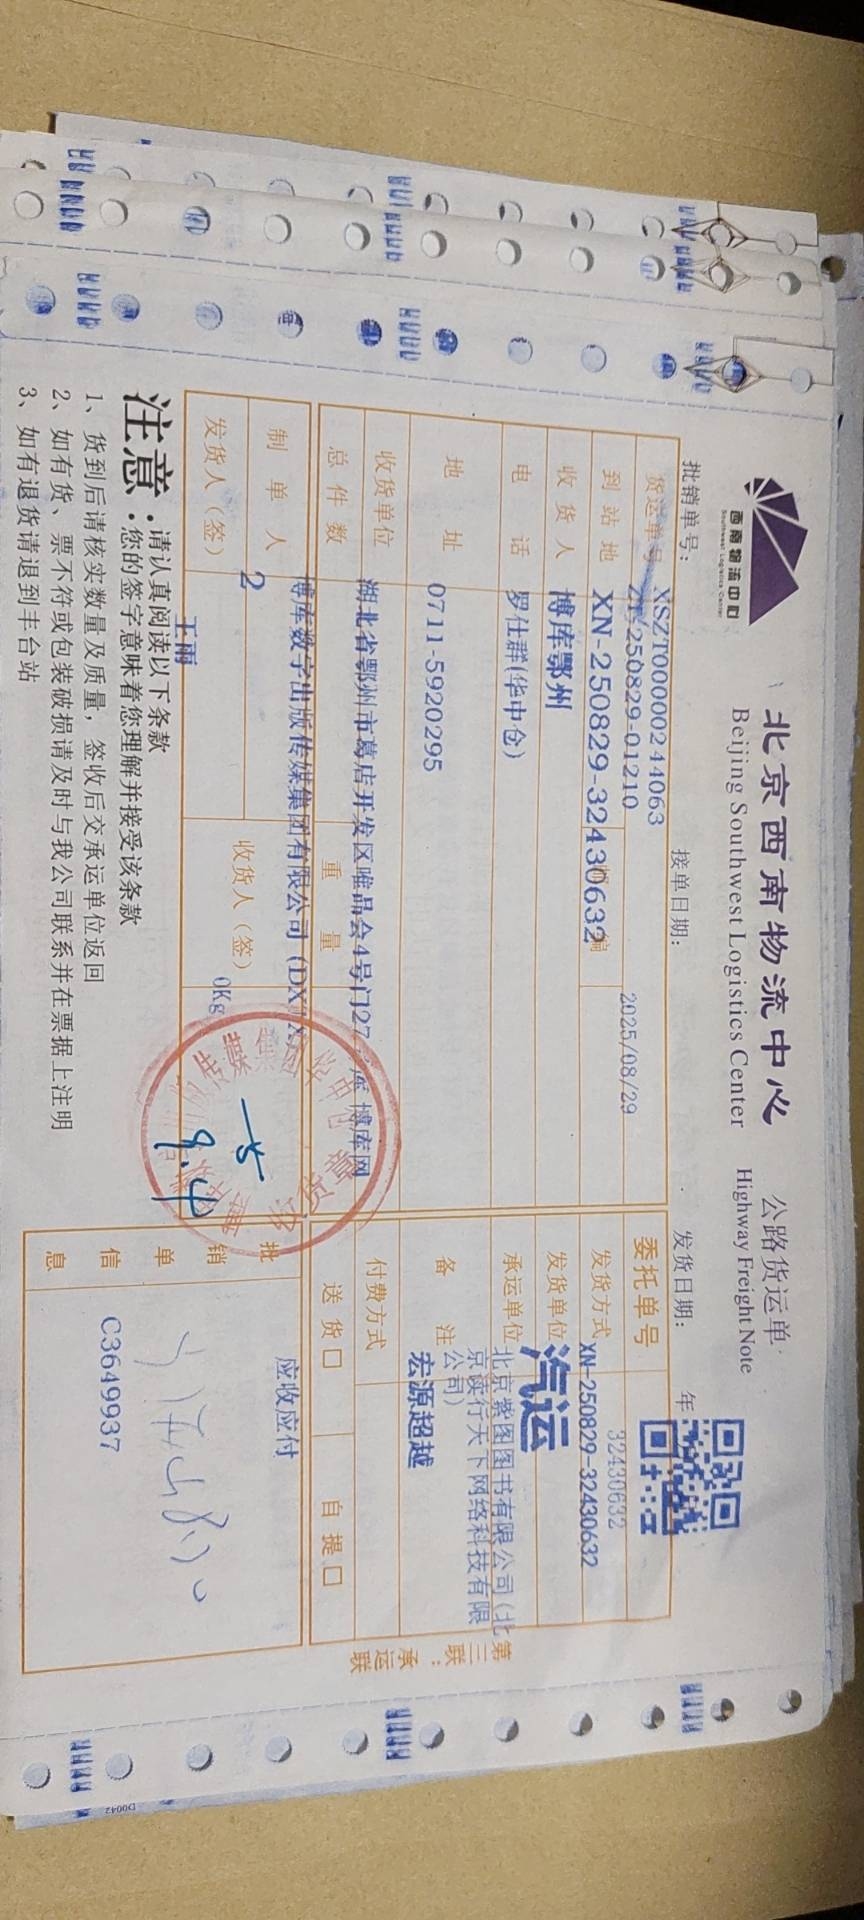 西南物流中心
Southwest Logistics Center
北京西南物流中心
Beijing Southwest Logistics Center
公路货运单
Highway Freight Note
批销单号：
XSZT00000244063
接单日期：
2025/08/29
发货日期：
年
货运单号
ZT-250829-01210
委托单号
32430632
到站地
XN-250829-32430632
发货方式
XN-250829-32430632
收货人
博库鄂州
发货单位
汽运
电话
罗仕群(华中仓)
承运单位
北京紫图图书有限公司(北
京读行天下网络科技有限
公司)
地址
0711-5920295
备注
宏源超越
收货单位
湖北省鄂州市葛店开发区唯品会4号门27
库 博库网
付费方式
总件数
重量
博库数字出版传媒集团有限公司(DX
送货口
自提口
制单人
2
收货人(签)
0Kg
发货人(签)
王雨
批销单信息
应收应付
C3649937
第三联：承运联
注意：
请认真阅读以下条款
您的签字意味着您理解并接受该条款
1、货到后请核实数量及质量，签收后交承运单位返回
2、如有货、票不符或包装破损请及时与我公司联系并在票据上注明
3、如有退货请退到丰台站
D0042